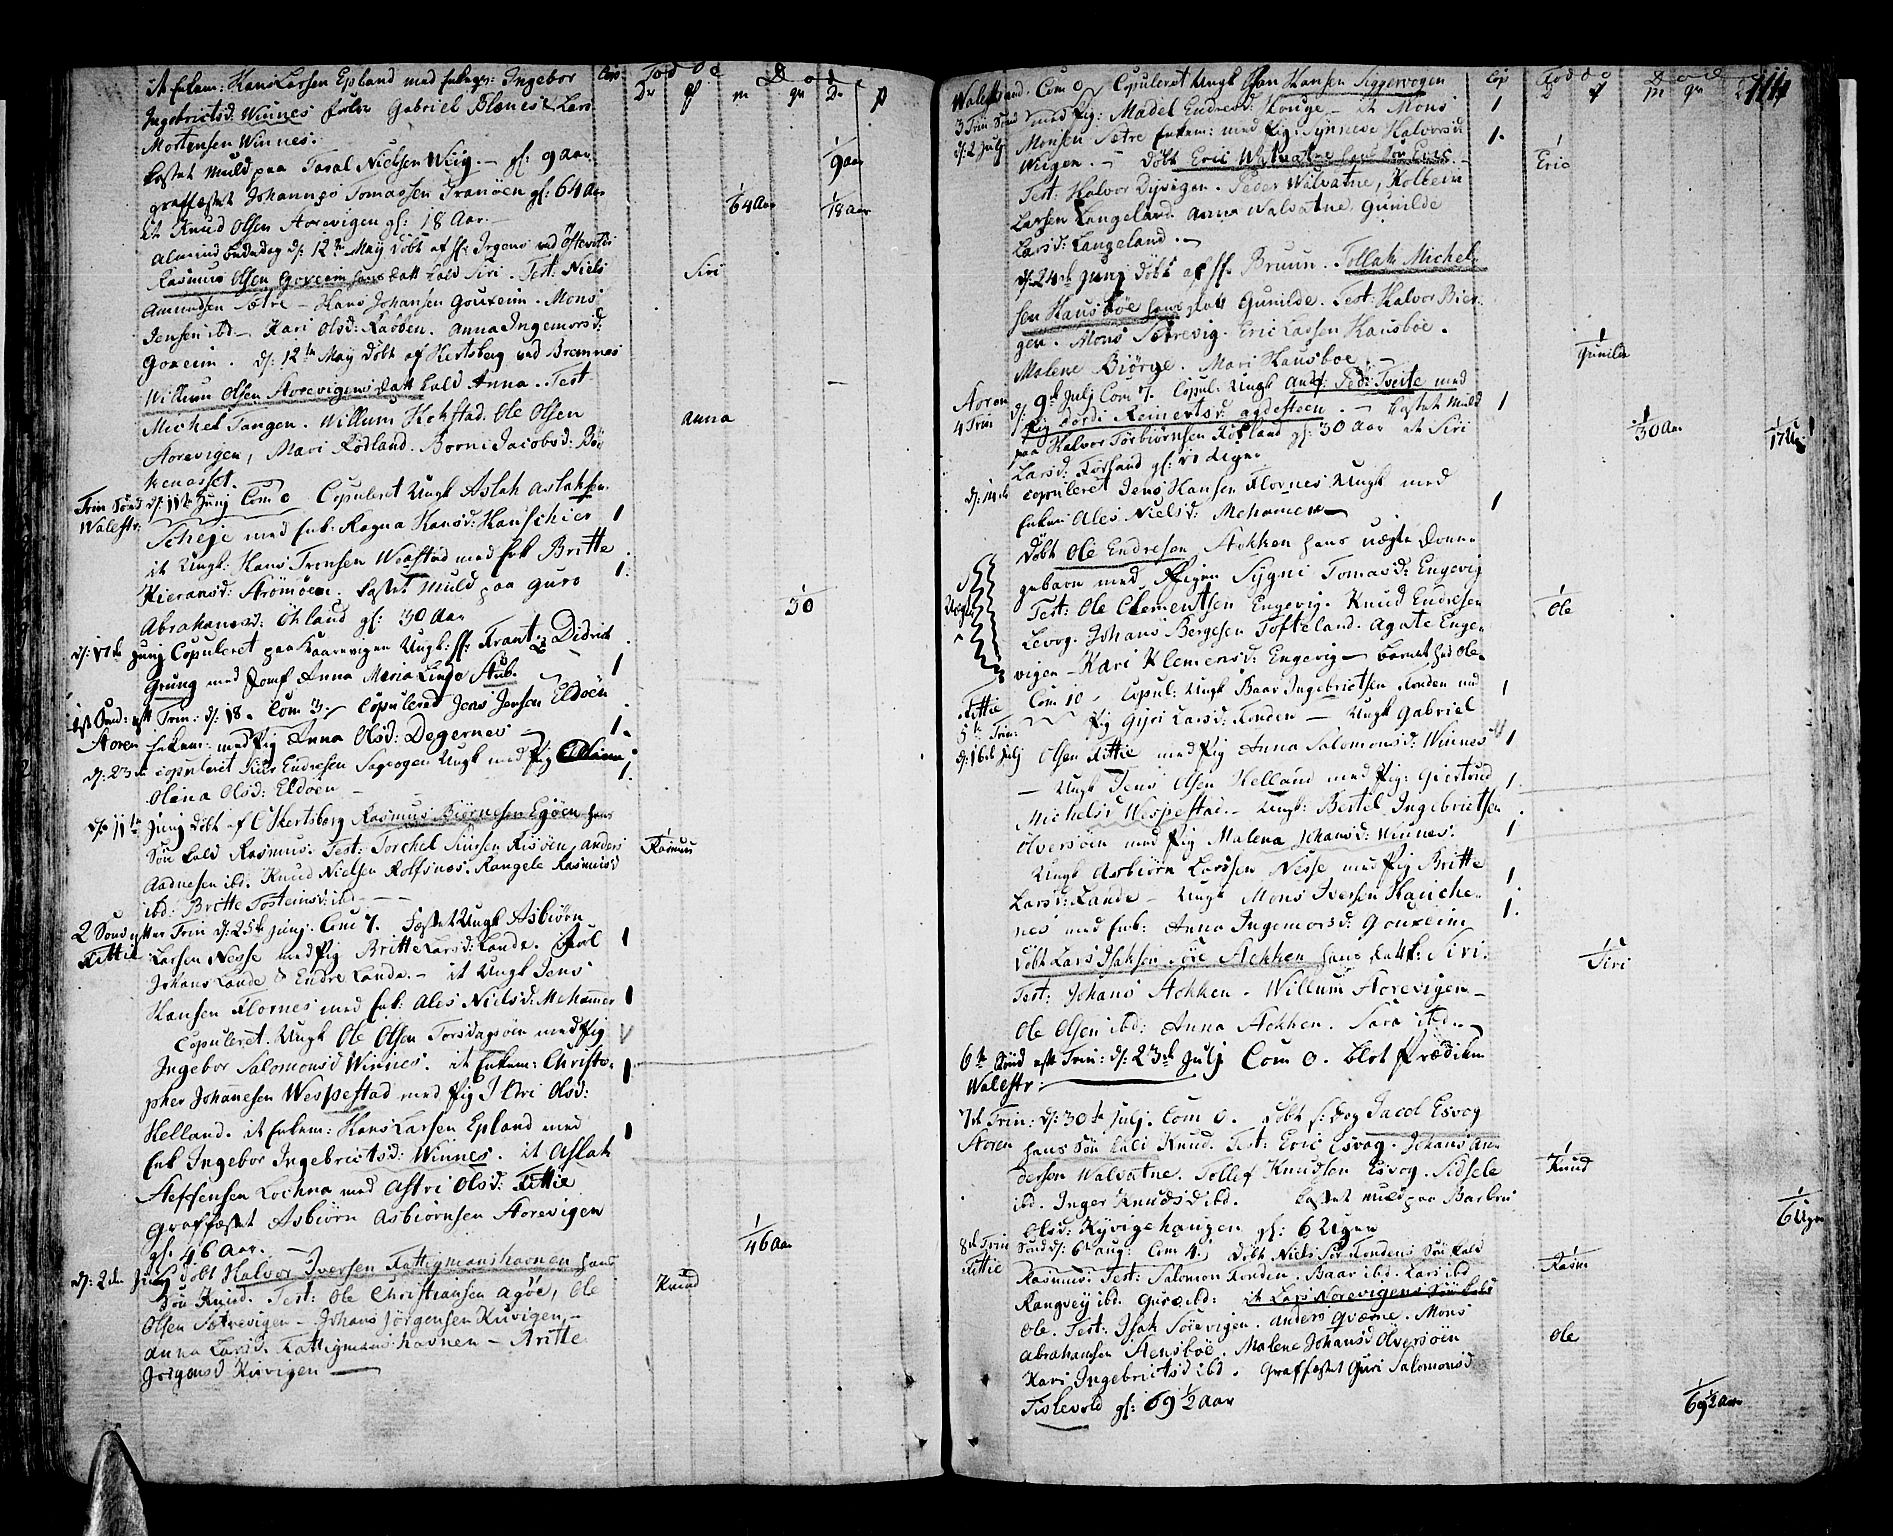 it Enkem: Hans Larsen Epland med Enkepg: Ingebor
Ingebrictsd: Winnes Gabriel Blønes & Lars
Mortensen Winnes.
Kastet Muld paa Nielsen Wiig. — gl: 9 aar
graffæstet Johannes Tomassen Tranøen gl: 64 Aar
it Knud Olsen Aorevigen gl: 18 Aar. —
Almind: Bededag d: 12te May Døbt af H: Irgens ved
Rasmus Olsen Goxeim hans Datt kald Siri. Test: Niels
Amundsen Sætre — Hans Johansen Gouxeim. Mons
Jensen ibd — Kari Olsd: Anna Ingemorsd:
Goxeim. d: 12te May Døbt af Hertsberg ved Bremnes
Willum Olsen Aorevigens Datt kald Anna. Test
Michel Tangen. Willum Hokstad. Ole Olsen
Aorevigen, Mari Rødland. Borni Jacobsd:
kenasset.
Trin Sønd d: 11te Junj Com 0 Copuleret Ungk Aslak Aslaksen
Walestr:
Scheje med Enk: Ragna Hansd: 1
it Ungk: Hans med Enk Britte
Kieransd: Strømøen. Kastet Muld paa Guro 1.
Abrahamsd: Økland gl: 30 Aar
d: 17de Junj Copuleret paa Kaarevigen Ungk: H: Frantz Didrik
Grung med Jomf. Anna Maria Stub. 1
1st Sønd: eft Trin: d: 18. Com 3. Copulered Jens Jensen Eldøen
Aoren Enkem: med Pig Anna Olsd: Degernes — 1
d: 23de copuleret Siur Endresen Sagvogen Ungk med Pig
Olina Olsd: Eldøen — 1.
d: 11te Junj døbt af C Hertsberg Rasmus Biørnesen Egøen hans
Søn kald Rasmus. Test: Torchel Siursen Risøen, Anders
Aadnesen ibd. Knud Nielsen Rolfsnes. Rangele Rasmusd
ibd: Britte Tosteinsd: ibd — —
2 Sønd efter Trin d: 25de Junj. Com 7. Fæstet Ungk Asbiørn
Fittie Larsen Nesse med Pig Britte Larsd: Lande. 1
Johans Lande & Endre Lande. — it Ungk Jens
Hansen Flornes med Enk: Ales Nielsd: Mehamer 1
Copuleret. Ungk Ole Olsen Torsdagsøin med Pig
Ingebor Salomonsd Winnes. it Enkem: Christo-
pher Johannesen Wespestad med Pig Olsd: 1
Helland. it Enkem: Hans Larsen Epland med
Enk Ingebor Ingebrictsd: Winnes. it Aslak 1
Steffensen Lochna med Astri Olsd: Fittie
Graffæstet Asbiørn Asbiørnsen Aorevigen
gl. 46 Aar. —
d: 2den Julj døbt Halvor Iversen Fattigmanshavnen hans
Søn Knud. Test: Ole Christiansen Agøe, Ole
Olsen Sætrevigen — Johans Jørgensen Kuvigen —
Anna Larsd. Fattigmans Havnen — Britte
Jørgensd Kuvigen —
Cop Fødde Døde
1/9 aar
1/64 Aar 1/18 aar
Siri
Anna
1/30
1 Rasmus
1/46 Aar
Knud
Walestrand. Com 0 Copuleret Ungk Hansen Siggervogen
3 Trin Sønd med Pig: Madel Endresd: Houge — it Mons 1
d: 2 Julj Monsen Sætre Enkem: med Pig: Synneve Halvorsd 1.
Wigen. — Døbt Eric Walvatne hans Søn Eric —
Test: Halvor Dyvigen. Peder Walvatne, Kolbein
Larsen Langeland. Anna Walvatne, Gunilde
Larsd: Langeland. —
d: 24de Junj Døbt af H. Bruun. Tollak Michel-
sen Hausbøe hans Datt Gunilde. Test: Halvor Bier-
gen. Mons Sætrevig. Eric Larsen Hausbøe.
Malene Biørge. Mari Hausbøe. —
Aoren d: 9de Julj Com 7. Copul: Ungk And: Ped: Tveite med
4 Trin Pig Dordi Reinertsd Agdesteen. — Kastet Muld 1
paa Halvor Torbiørnsen gl: 30 Aar it Siri
Larsd: gl: 17 Uger
d: 14de copuleret Jens Hansen Flornes Ungk med
Enken Ales Nielsd: Mehamen — 1
Døbt Ole Endresen Aekken hans uægte Drenne
gebarn med Pigen Sygni Tomasd: Engevig
Test: Ole Clementsen Engevig. Knud Endresen
Levog. Johans Bergesen Tofteland. Agate Enge-
vigen — Kari Klemensd: Engevig — barnet hed Ole.
Fittie Com 10. Copul: Ungk Baar Ingebrictsen Fonden med 1
5te Trin: Pig Gyri Larsd: Fonden — Ungk Gabriel
d: 16de Julj Olsen Fittie med Pig Anna Salomonsd: Winnes 1
— Ungk Jens Olsen Helland med Pig: Giertrud
Michelsd Wespestad. — Ungk: Bertel Ingebrictsen 1
Olversøin med Pig Malena Johansd: Winnes. 1
Ungk Asbiørn Larssen Nesse med Pig Britte
Larsd: Lande — Ungk Mons Iversen 1
nes med Enk: Anna Ingemorsd: Gouxeim 1.
Døbt Lars Isaksen Aekken hans Siri.
Test: Johans Aekken. Willum Aorevigen —
Ole Olsen ibd: Anna Aekken. Sara ibd. —
6te Sønd eft Trin: d: 23de Julj Com 0. blot Prædiken
Walestr:
7de Trin: d: 30te Julj. Com 0. døbt Jacob Esvog
Aoren hans Søn kald Knud. Test: Eric Esvog. Johans An-
dersen Walvatne. Tollef Knudsen Esvog. Sidsele
ibd. Inger Knudsd ibd. Kastet muld paa Barbru
Olsd: Kyvigehaugen gl: 6 Uger
8de Trin Sønd d: 6te Aug: Com 4. Døbt Niels Fondens Søn kald
Fittie Rasmus: Test: Salomon Fonden. Baar ibd. Lars ibd
Rangvey ibd. Guro ibd: it Lars Norevigens Søn kald
Ole. Test: Isak Sørevigen. Anders Qværne. Mons
Abrahamsen Stensbøe. Malene Johansd Olversøen
Kari Ingebrictsd ibd. Graffæstet Guri Salomonsd
gl: 69 1/2 Aar
Cop Fødde Døde 114
1 Eric
1 Gunilde
1/30 Aar 1/17 Ug
1 Ole
1 Siri
1 Knud
1/6 Uger
1 Rasm
Ole
1/69 1/2 aar